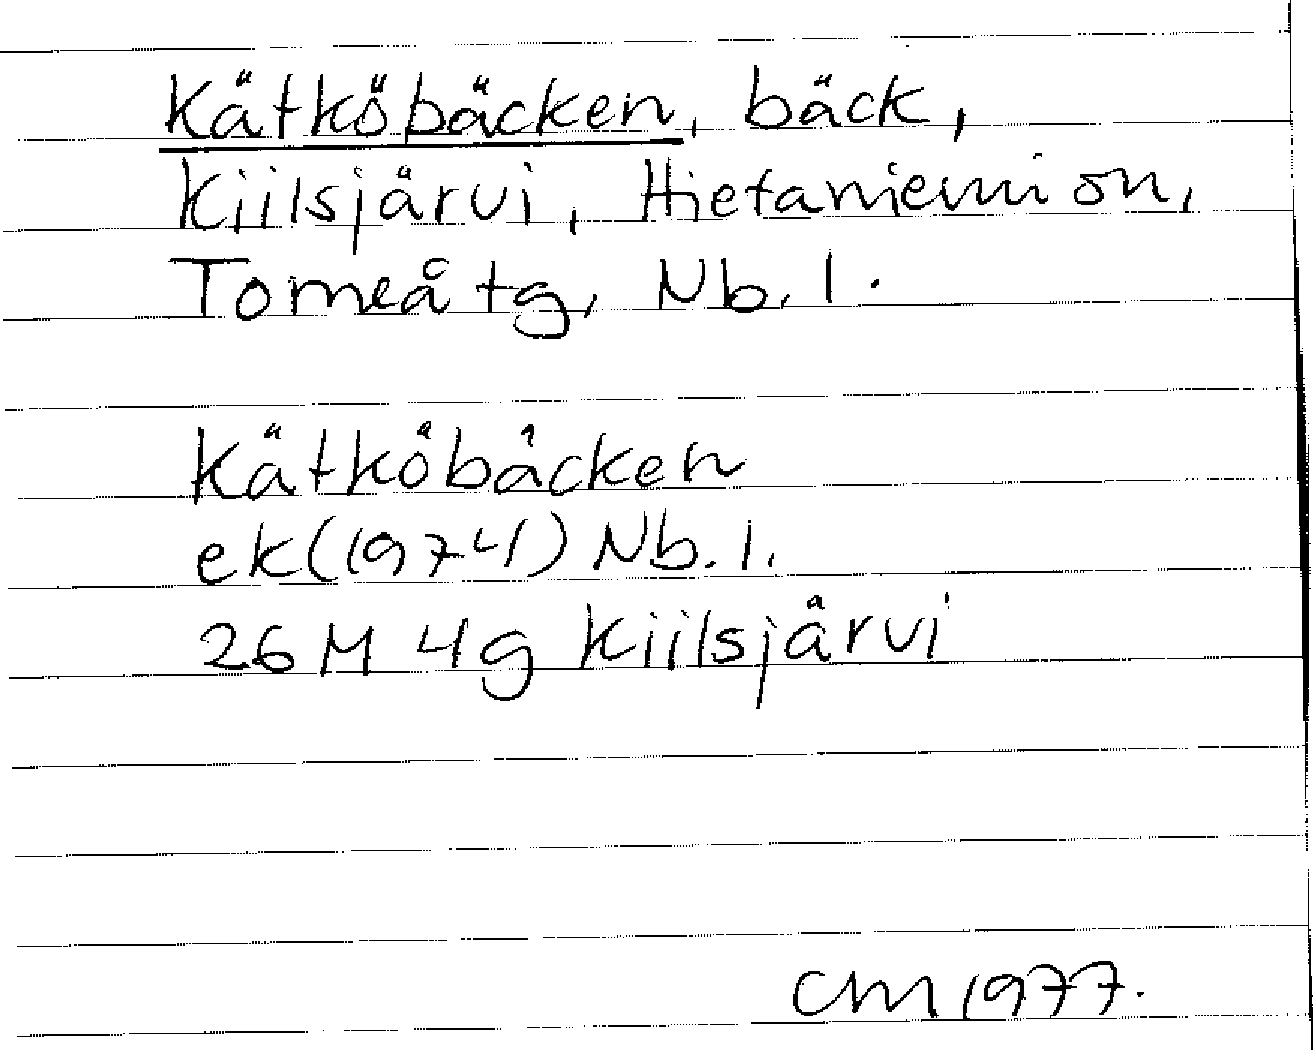 Kätköbäcken, bäck,
Kiilsjärvi, Hietaniemi sn,
Torneå tg, Nb. l.
Kätköbäcken
ek(1974) Nb. l.
26 M 4g Kiilsjärvi
CM 1977.